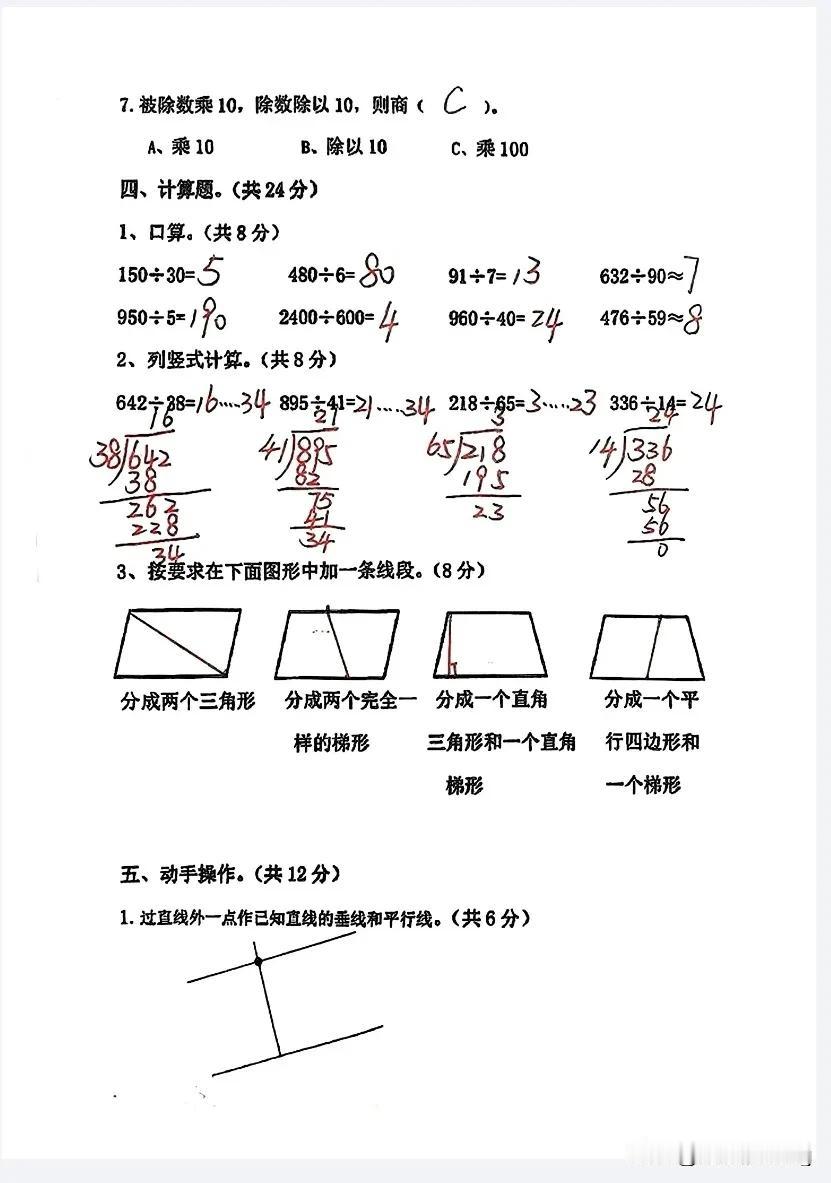 7.被除数乘10，除数除以10，则商（ C ）。
A、乘10 B、除以10 C、乘100
四、计算题。（共24分）
1、口算。（共8分）
150÷30=5 480÷6=80 91÷7=13 632÷90≈7
950÷5=190 2400÷600=4 960÷40=24 476÷59≈8
2、列竖式计算。（共8分）
642÷38=16……34 895÷41=21……34 218÷65=3……23 336÷14=24
16 21 3 24
38)642 41)895 65)218 14)336
38 82 195 28
262 75 23 56
228 41 56
34 34 0
3、按要求在下面图形中加一条线段。（8分）
分成两个三角形 分成两个完全一 分成一个直角 分成一个平
样的梯形 三角形和一个直角 行四边形和
梯形 一个梯形
五、动手操作。（共12分）
1.过直线外一点作已知直线的垂线和平行线。（共6分）